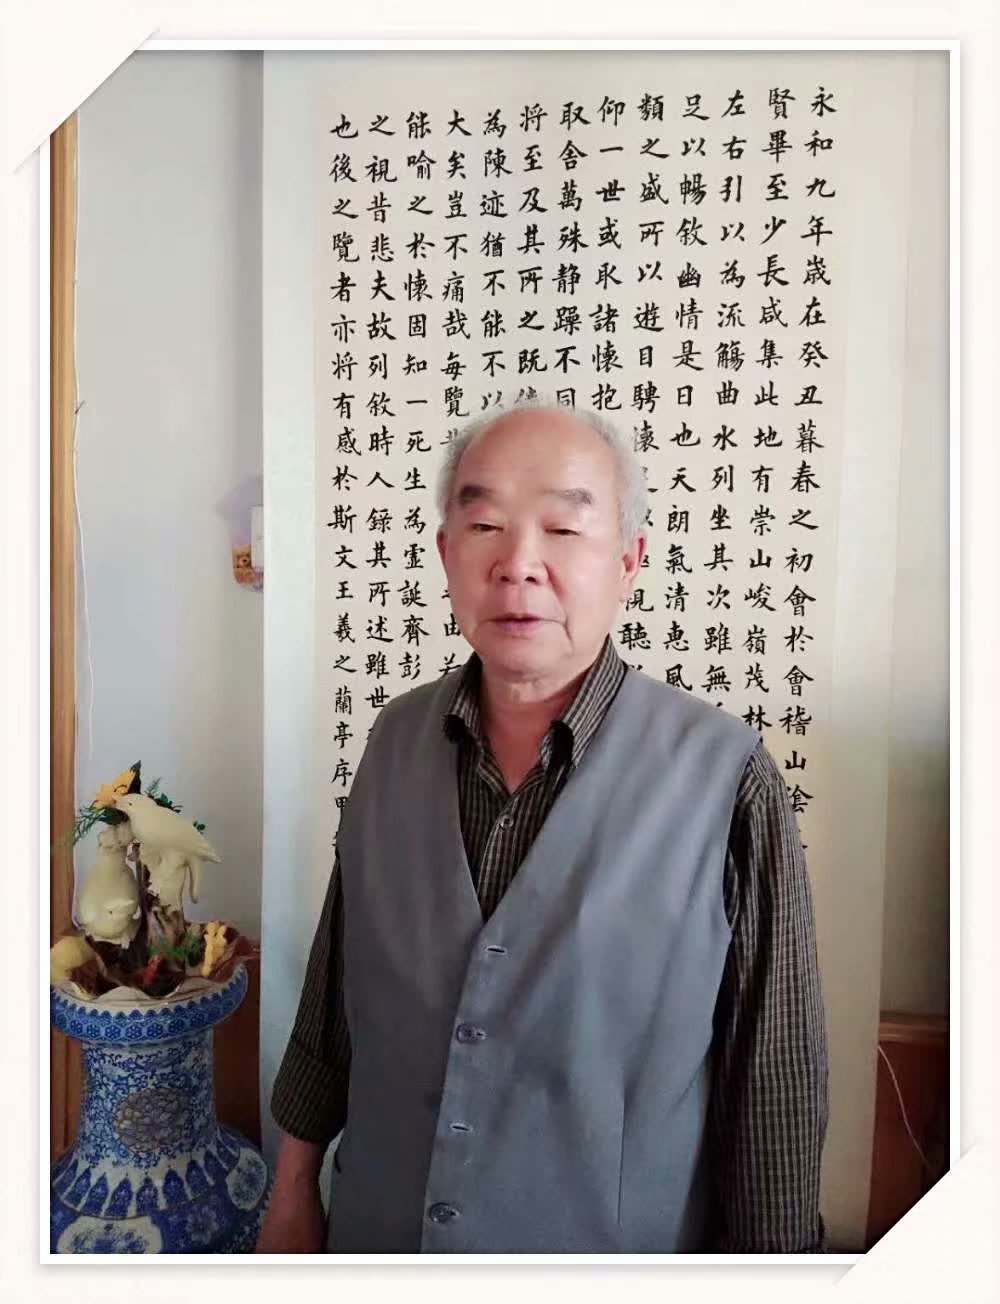 永和九年歲在癸丑暮春之初會於會稽山陰
賢畢至少長咸集此地有崇山峻嶺茂林
左右引以為流觴曲水列坐其次雖無
足以暢敘幽情是日也天朗氣清惠風
類之盛所以遊目騁懷視聽
仰一世或取諸懷抱
取舍萬殊静躁不同
将至及其所之既
為陳迹猶不能不以
大矣豈不痛哉每覽由若
能喻之於懷固知一死生為虛誕齊彭
之視昔悲夫故列敘時人錄其所述雖世
也後之覽者亦将有感於斯文王羲之蘭亭序甲